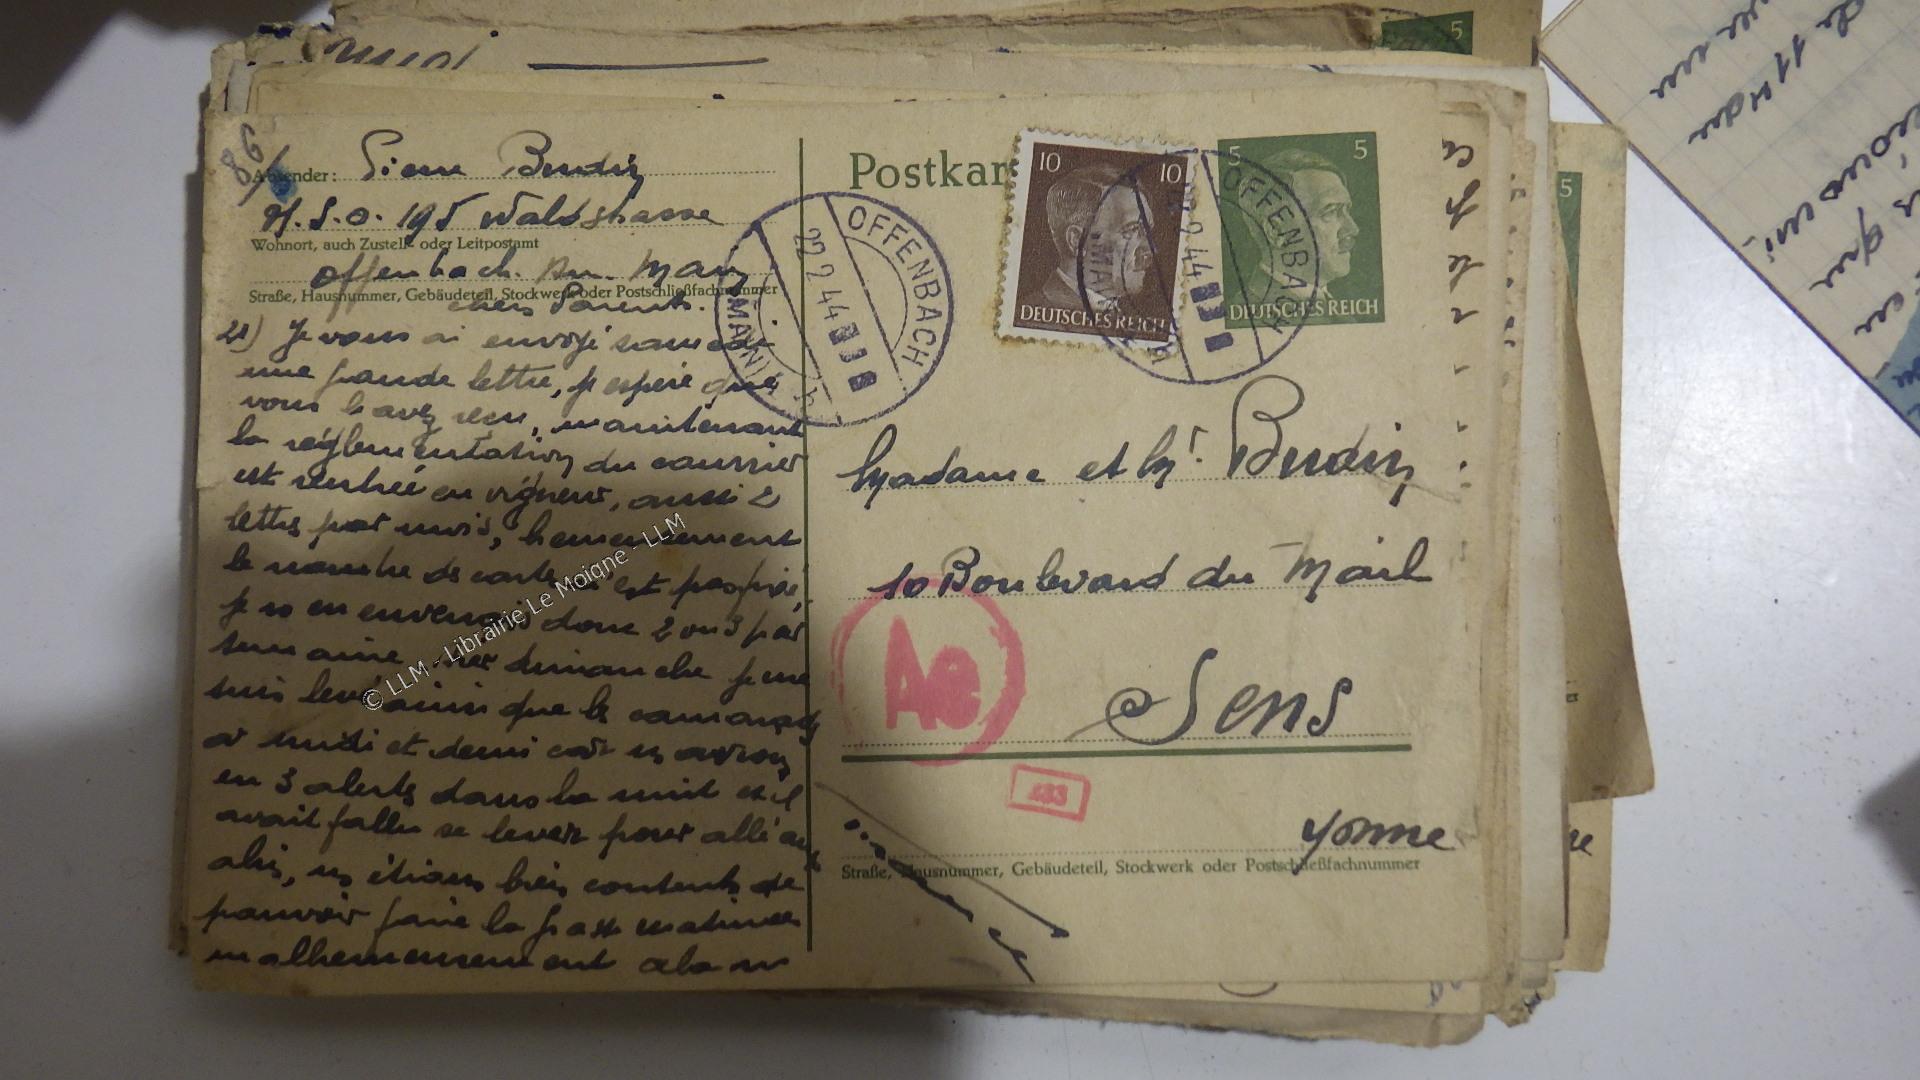 86
Absender: Pierre Budin
H.S.O. 195 Waldstrasse
Wohnort, auch Zustell- oder Leitpostamt
Offenbach. Am. Main
Straße, Hausnummer, Gebäudeteil, Stockwerk oder Postschließfachnummer
chers Parents.
21) Je vous ai envoyé samedi
une grande lettre, j espère que
vous l avez reçu, maintenant
la réglementation du courrier
est rentrée en vigueur, aussi 2
lettres par mois, heureusement
le nombre de carte n'est pas fixé,
je vs en enverrais donc 2 ou 3 par
semaine. hier dimanche je me
suis levé ainsi que les camarades
à midi et demi car ns avions
eu 3 alertes dans la nuit et il
avait fallu se lever pour allé aux
abis, ns étions bien contents de
pouvoir faire la grasse matinée
malheureusement cela
Postkar
10 10
DEUTSCHES REICH
5 5
DEUTSCHES REICH
OFFENBACH
22 9 44
(MAIN)
OFFENBACH
9 44
Madame et Mr. Budin
10 Boulevard du Mail
Sens
Yonne
Straße, Hausnummer, Gebäudeteil, Stockwerk oder Postschließfachnummer
Ae
© LLM - Librairie Le Moigne - LLM
5
5